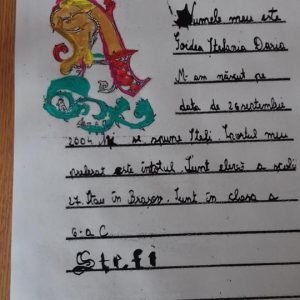 Numele meu este
Gordea Ștefania Daria
M-am născut pe
data de 26 septembrie
2004. Mi se spune Ștefi. Sportul meu
preferat este înotul. Sunt elevă a școlii
27. Stau în Brașov. Sunt în clasa a
6-a C
Ștefi